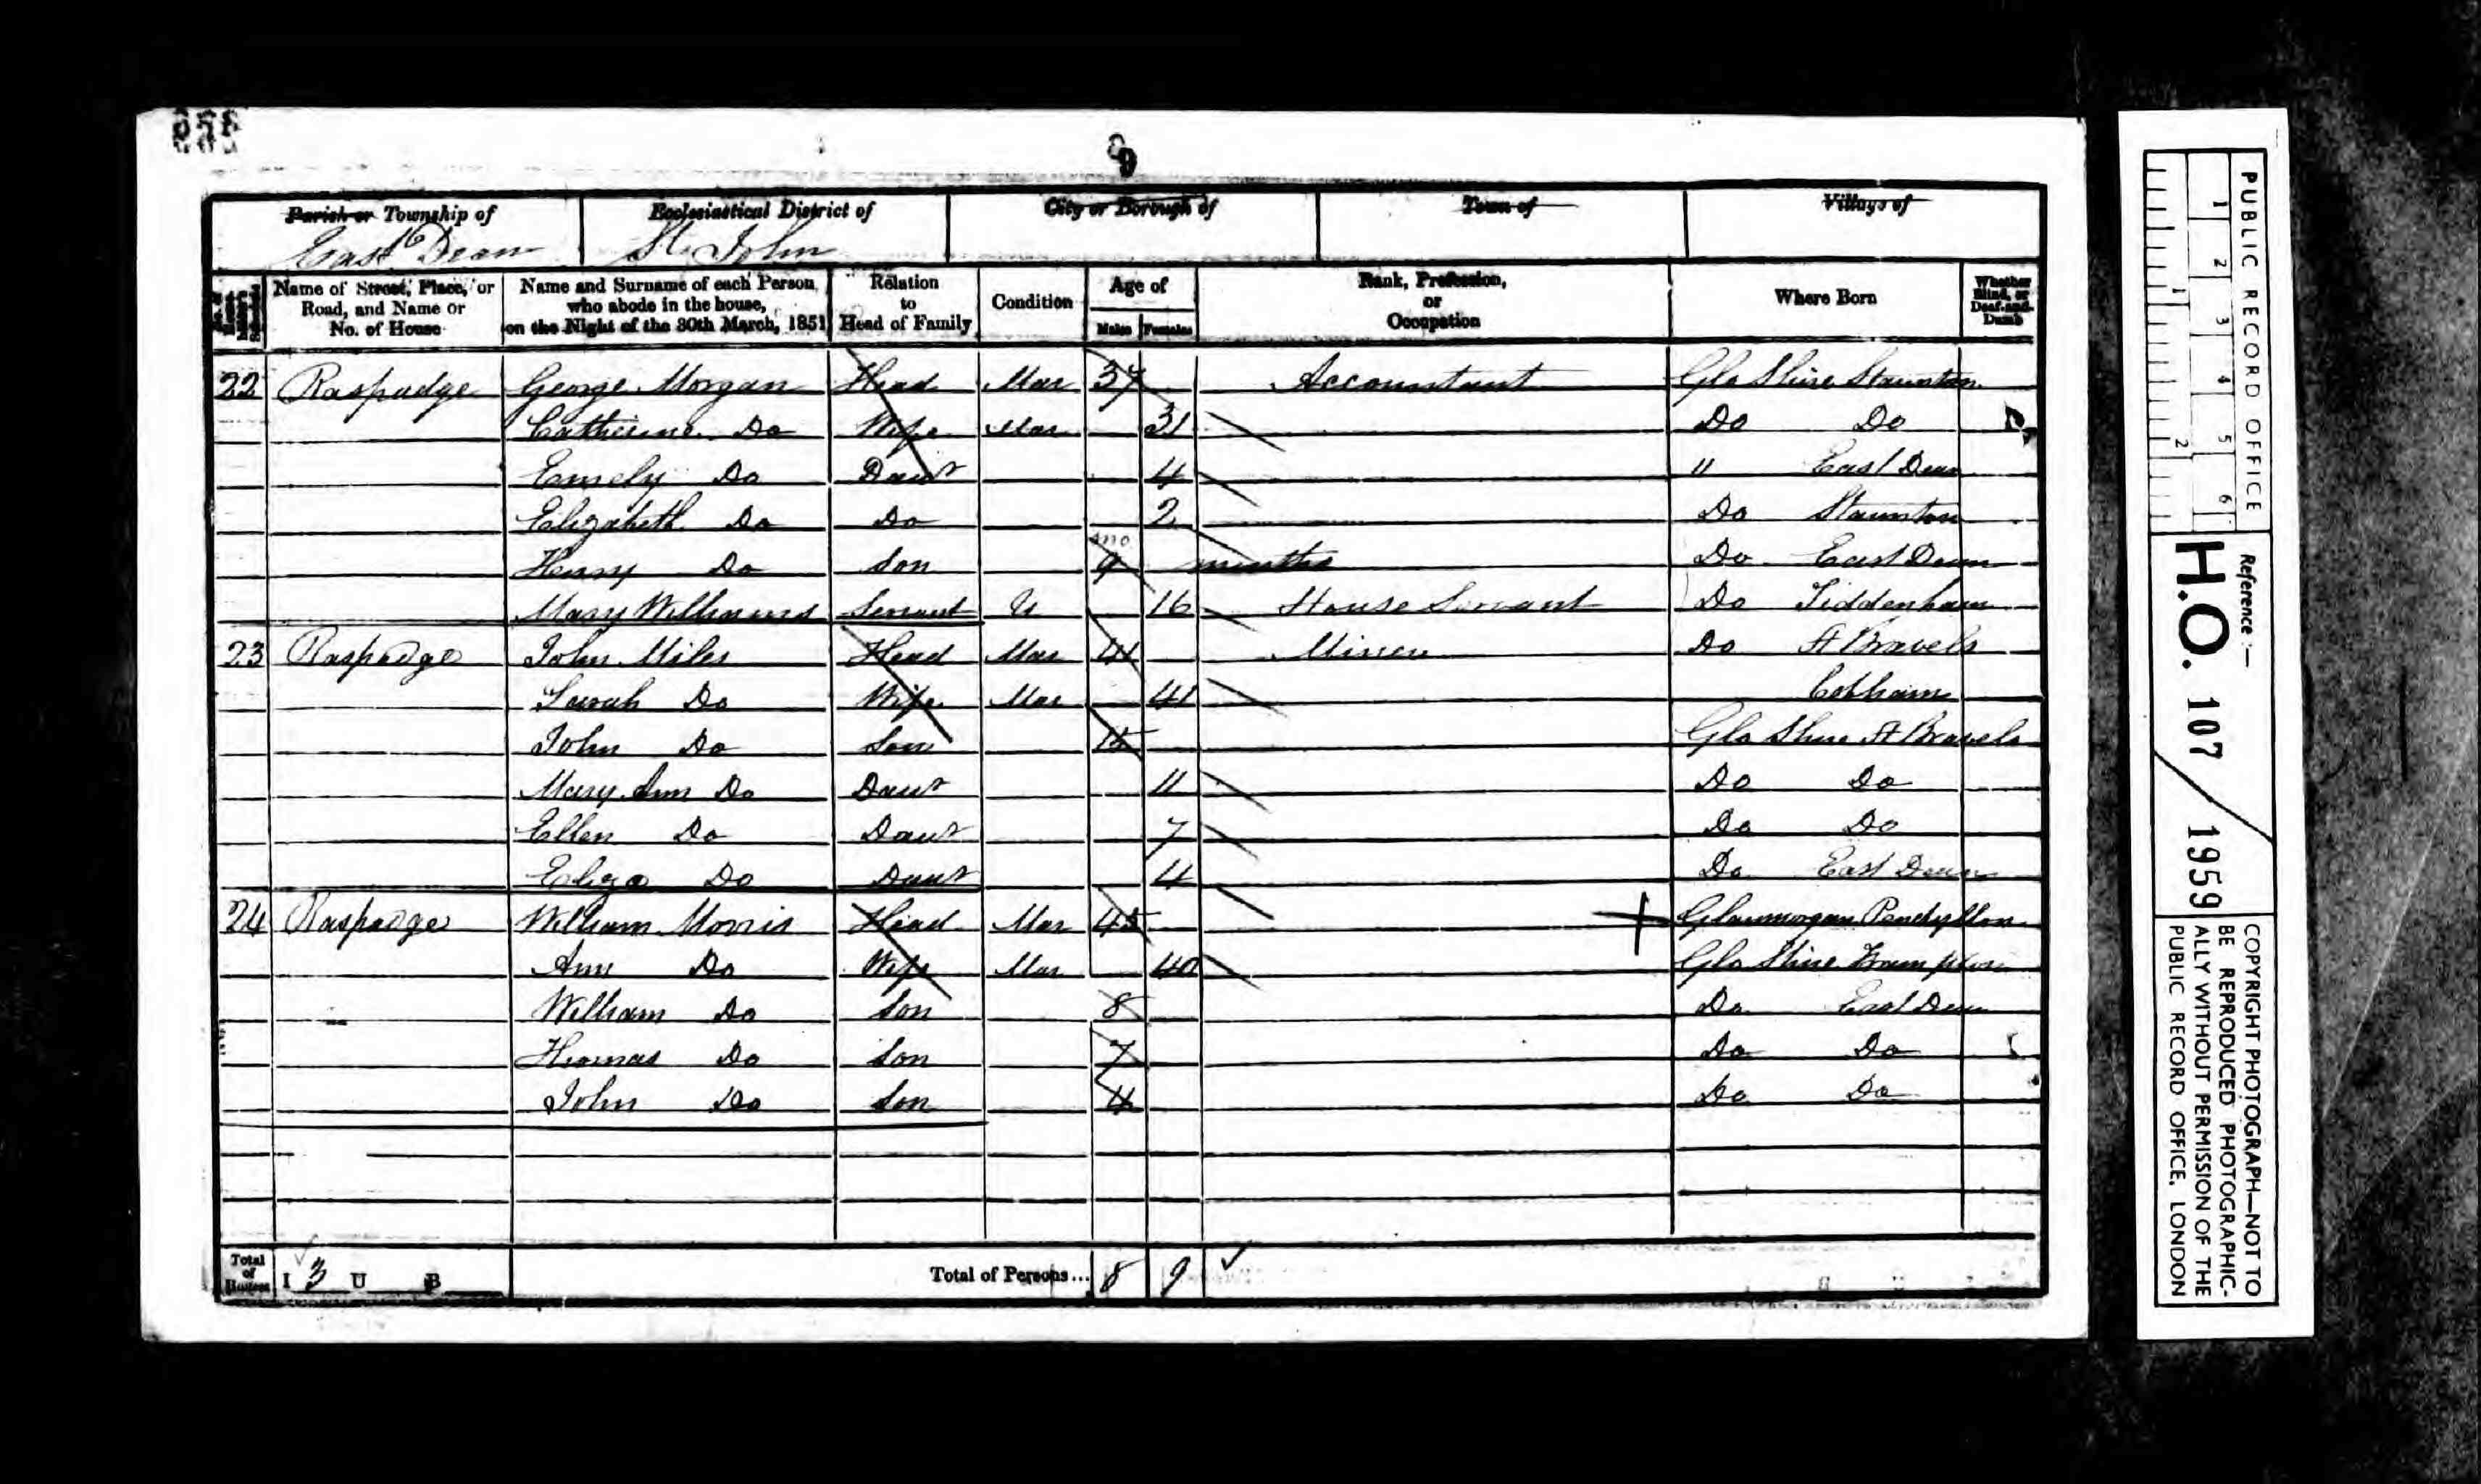 9
Parish or Township of Ecclesiastical District of City or Borough of Town of Village of
East Dean St. John
Name of Street, Place, or Road, and Name or No. of House
Name and Surname of each Person who abode in the house, on the Night of the 30th March, 1851
Relation to Head of Family
Condition
Age of
Males Females
Rank, Profession, or Occupation
Where Born
Whether Blind, or Deaf-and-Dumb
22 Raspadge George Morgan Head Mar 37 Accountant Glo Shire Staunton
Catherine Do Wife Mar 31 Do Do
Emely Do Daur 4 " East Dean
Elizabeth Do Do 2 Do Staunton
Henry Do Son mo 9 months Do East Dean
Mary Williams Servant U 16 House Servant Do Tiddenham
23 Raspadge John Miles Head Mar 41 Miner Do St Bravels
Sarah Do Wife Mar 41 Cobham
John Do Son 15 Glo Shire St Bravels
Mary Ann Do Daur 11 Do Do
Ellen Do Daur 7 Do Do
Eliza Do Daur 4 Do East Dean
24 Raspadge William Morris Head Mar 45 Glammorgan
Ann Do Wife Mar 40 Glo Shire Frampton
William Do Son 8 Do East Dean
Thomas Do Son 7 Do Do
John Do Son 4 Do Do
Total of Houses I 3 U B Total of Persons... 8 9
PUBLIC RECORD OFFICE
1 2 3 4 5 6
1 2
Reference :-
H.O. 107 / 1959
COPYRIGHT PHOTOGRAPH—NOT TO
BE REPRODUCED PHOTOGRAPHIC-
ALLY WITHOUT PERMISSION OF THE
PUBLIC RECORD OFFICE, LONDON